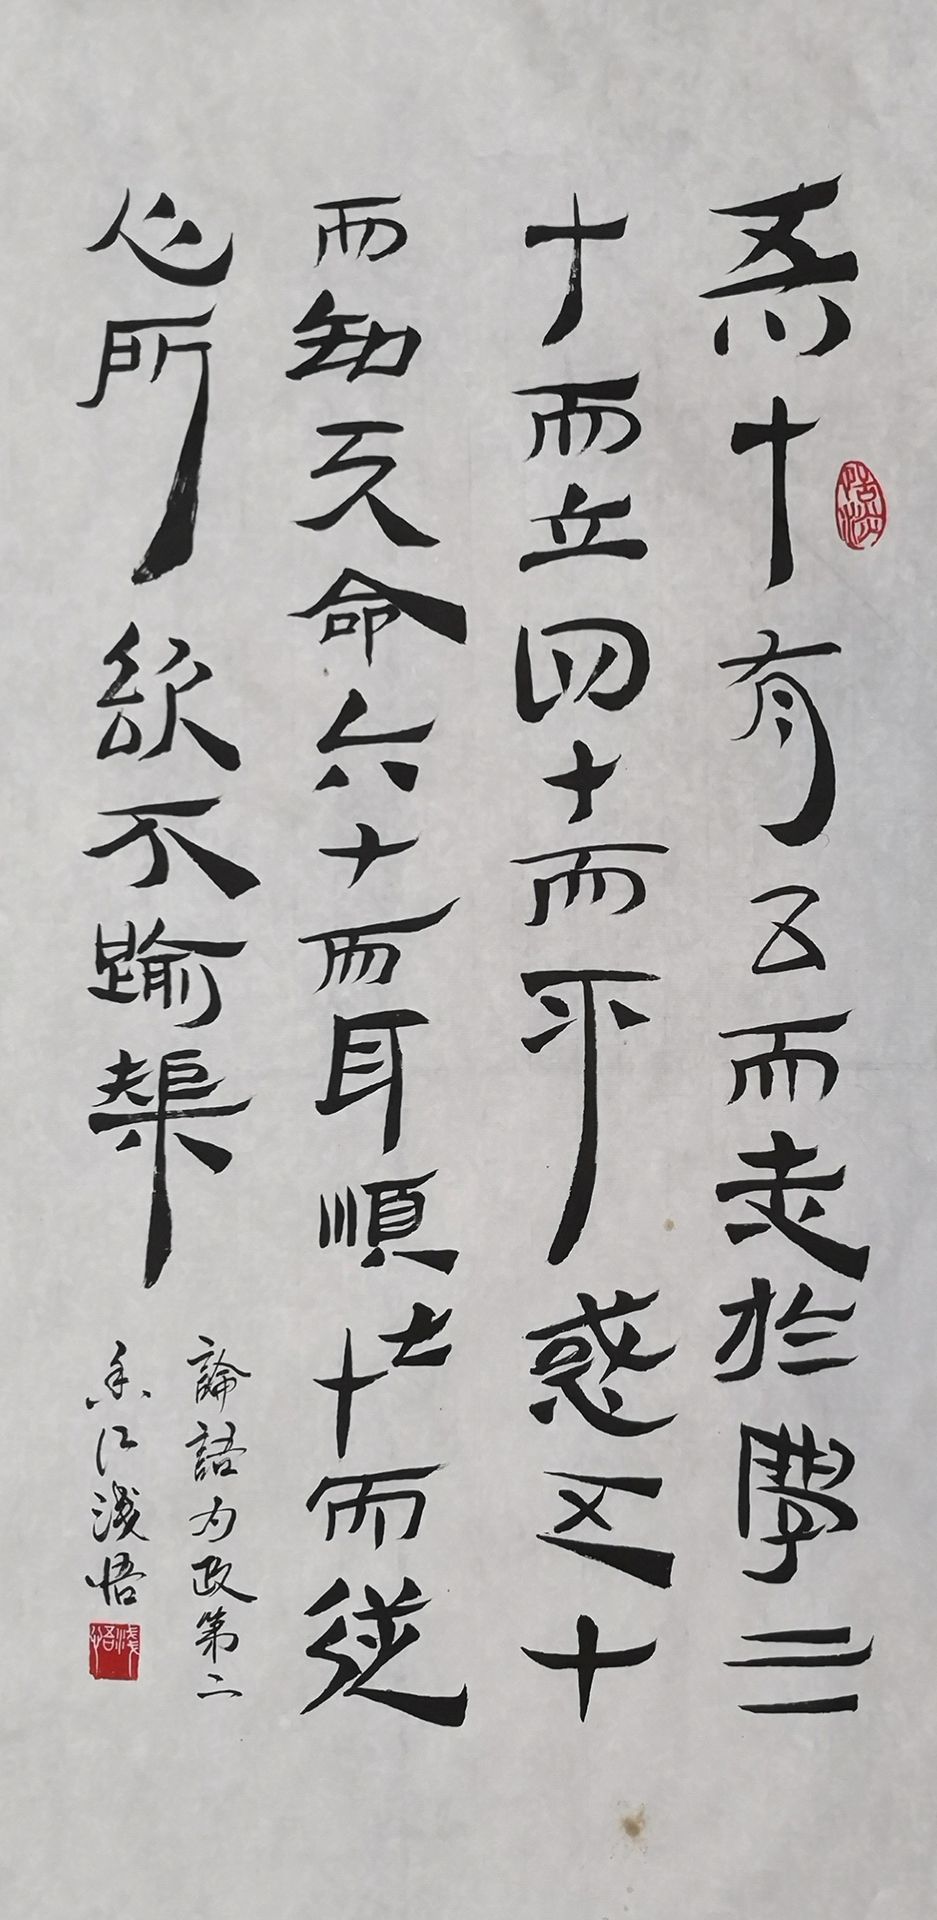 吾十有五而志於學三
十而立四十而不惑五十
而知天命六十而耳順七十而從
心所欲不踰榘
論語为政第二
香江淺悟
淺悟